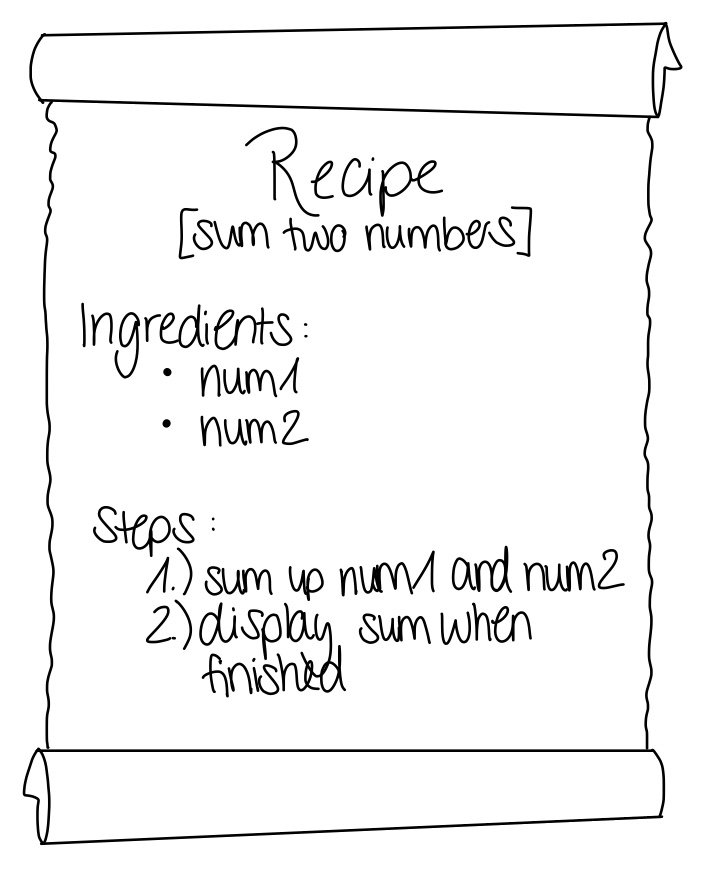 Recipe
[sum two numbers]
Ingredients:
• num1
• num2
Steps:
1.) sum up num1 and num2
2.) display sum when
finished